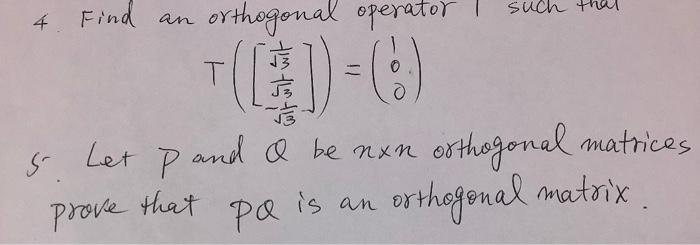 4. Find an orthogonal operator T such that
T([1/√3 1/√3 -1/√3]) = (1 0 0)
5. Let P and Q be n×n orthogonal matrices
prove that PQ is an orthogonal matrix.